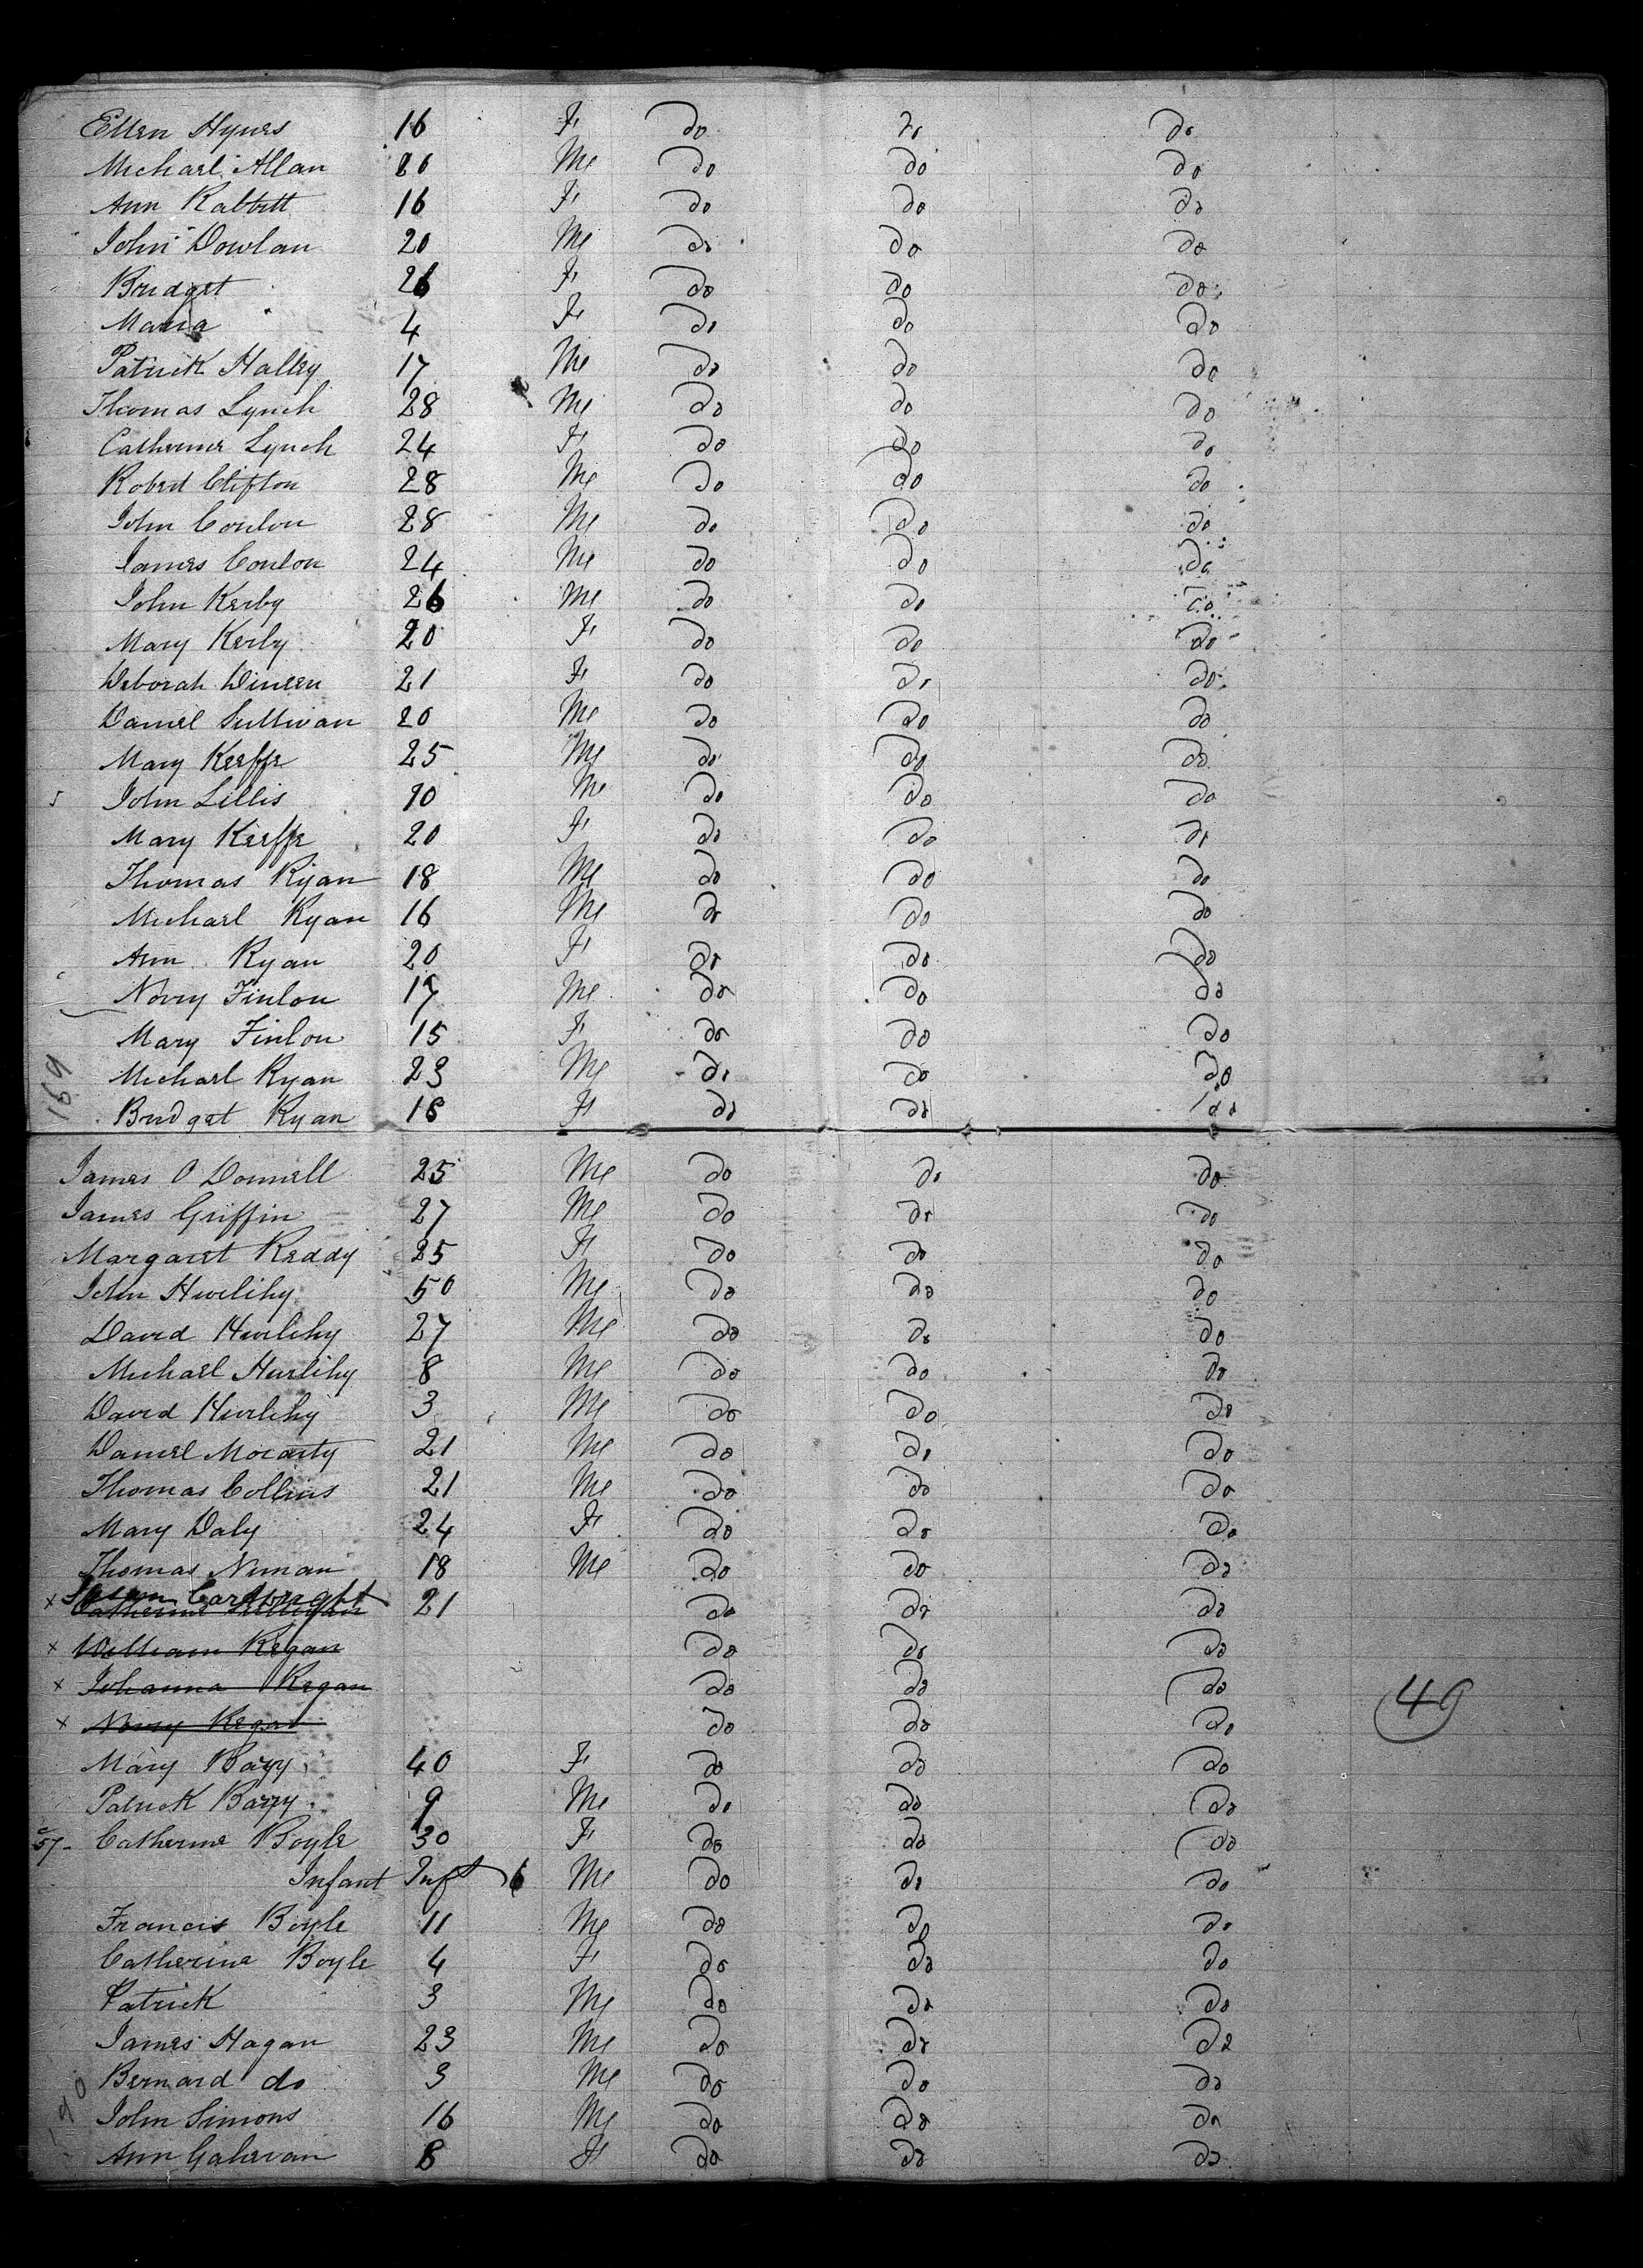 Ellen Hynes 16 F do do do
Michael Allan 20 Me do do do
Ann Rabbitt 16 F do do do
John Dowlan 20 Me do do do
Bridget 26 F do do do
Maria 4 F do do do
Patrick Halley 17 Me do do do
Thomas Lynch 28 Me do do do
Catherine Lynch 24 F do do do
Robert Clifton 28 Me do do do
John Conlon 28 Me do do do
James Conlon 24 Me do do do
John Kerby 26 Me do do do
Mary Kerby 20 F do do do
Deborah Dineen 21 F do do do
Daniel Sullivan 20 Me do do do
Mary Keeffe 25 Me do do do
John Lillis 10 Me do do do
Mary Keeffe 20 F do do do
Thomas Ryan 18 Me do do do
Michael Ryan 16 Me do do do
Ann Ryan 20 F do do do
Norry Finlon 17 Me do do do
Mary Finlon 15 F do do do
169 Michael Ryan 23 Me do do do
Bridget Ryan 18 F do do do
James O Donnell 25 Me do do do
James Griffin 27 Me do do do
Margaret Reddy 25 F do do do
John Hurlihy 50 Me do do do
David Hurlihy 27 Me do do do
Michael Hurlihy 8 Me do do do
David Hurlihy 3 Me do do do
Daniel Mocarty 21 Me do do do
Thomas Collins 21 Me do do do
Mary Daly 24 F do do do
Thomas Nunan 18 Me do do do
Cartwright
x Catherine Sullivan 21 do do do
x William Regan do do do
x Johanna Regan do do do 49
x Norry Regan do do do
Mary Barry 40 F do do do
Patrick Barry 9 Me do do do
57 Catherine Boyle 30 F do do do
Infant Inft 6 Me do do do
Francis Boyle 11 Me do do do
Catherine Boyle 4 F do do do
Patrick 3 Me do do do
James Hagan 23 Me do do do
Bernard do 3 Me do do do
John Simons 16 Me do do do
Ann Galevan 8 F do do do